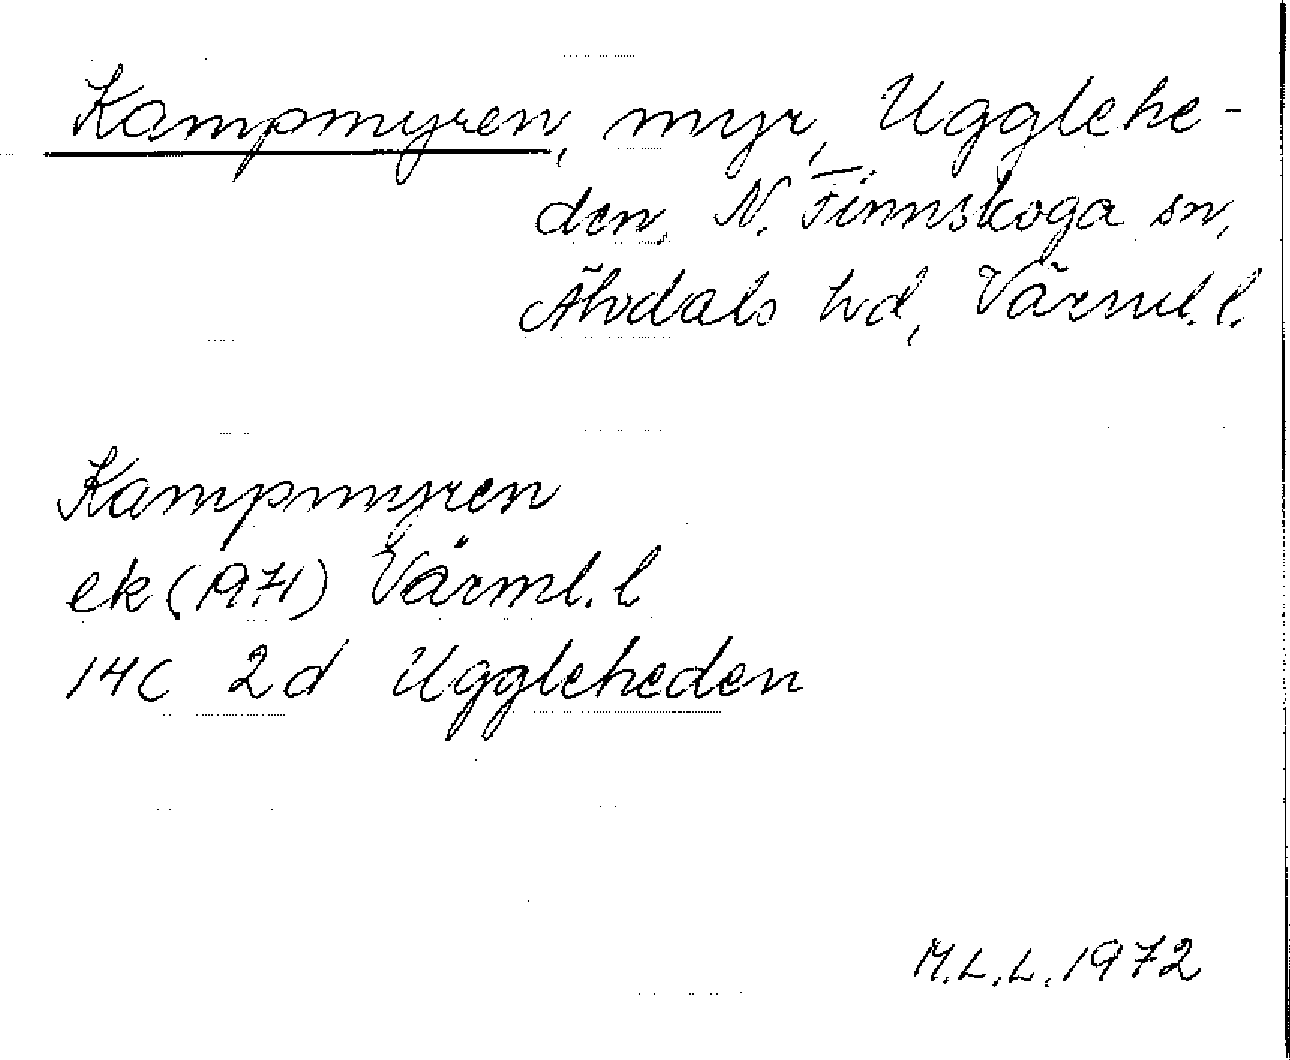 Kampmyren, myr, Ugglehe-
den, N. Finnskoga sn,
Älvdals hd, Värml. l.
Kampmyren
ek (1971) Värml. l
14C 2d Uggleheden
M.L.L. 1972